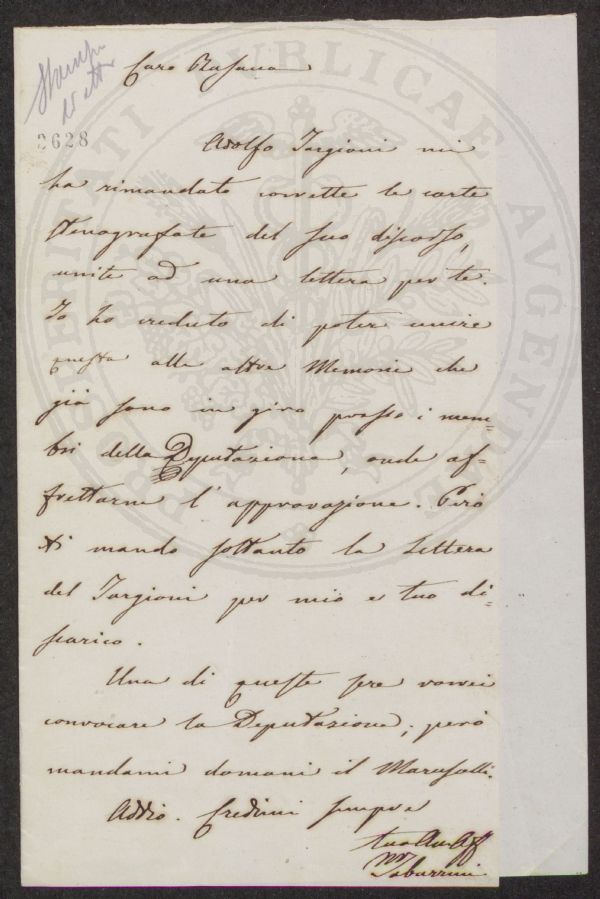 Caro
2628
Adolfo Targioni mi
ha rimandato corrette le carte
stenografate del suo discorso,
unite ad una lettera per te.
Io ho creduto di poter unire
questa alle altre Memorie che
già sono in giro presso i mem=
bri della Deputazione, onde af=
frettarne l'approvazione. Però
ti mando soltanto la lettera
del Targioni per mio e tuo di=
scarico.
Una di queste sere vorrei
convocare la Deputazione; però
mandami domani il
Addio. Credimi sempre
tuo Aff
M Tabarrini
PROSPERITATI PUBLICAE AVGENDAE